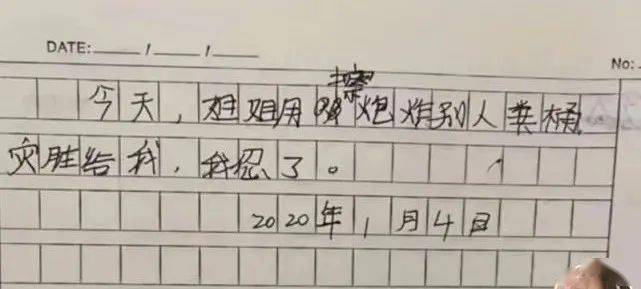 DATE: / /
No:
今天,姐姐用擦炮炸别人粪桶
灾胜给我,我忍了。
2020年1月4日